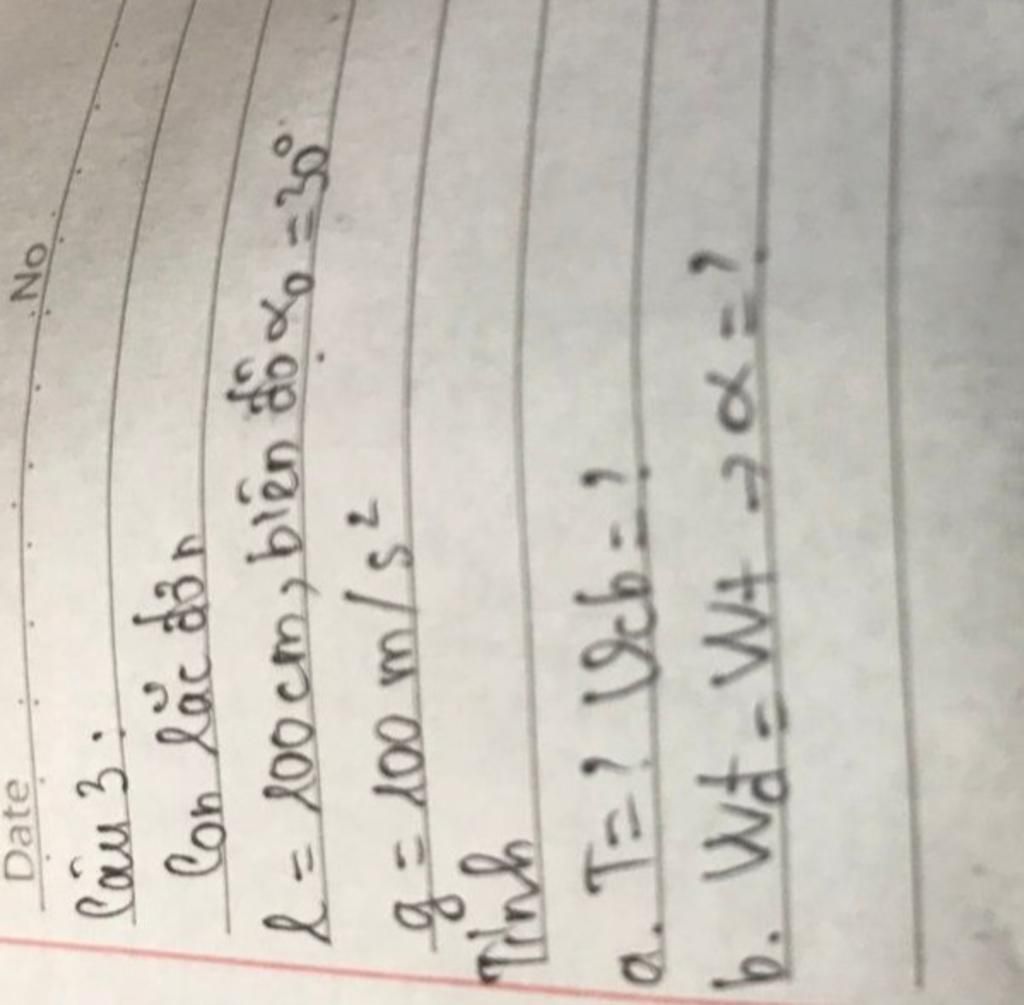 Date No
Câu 3.
Con lắc đơn
l = 100cm, biên độ α₀ = 30°
g = 100 m/s²
Tính
a. T = ? Vcb = ?
b. Wđ = Wt → α = ?